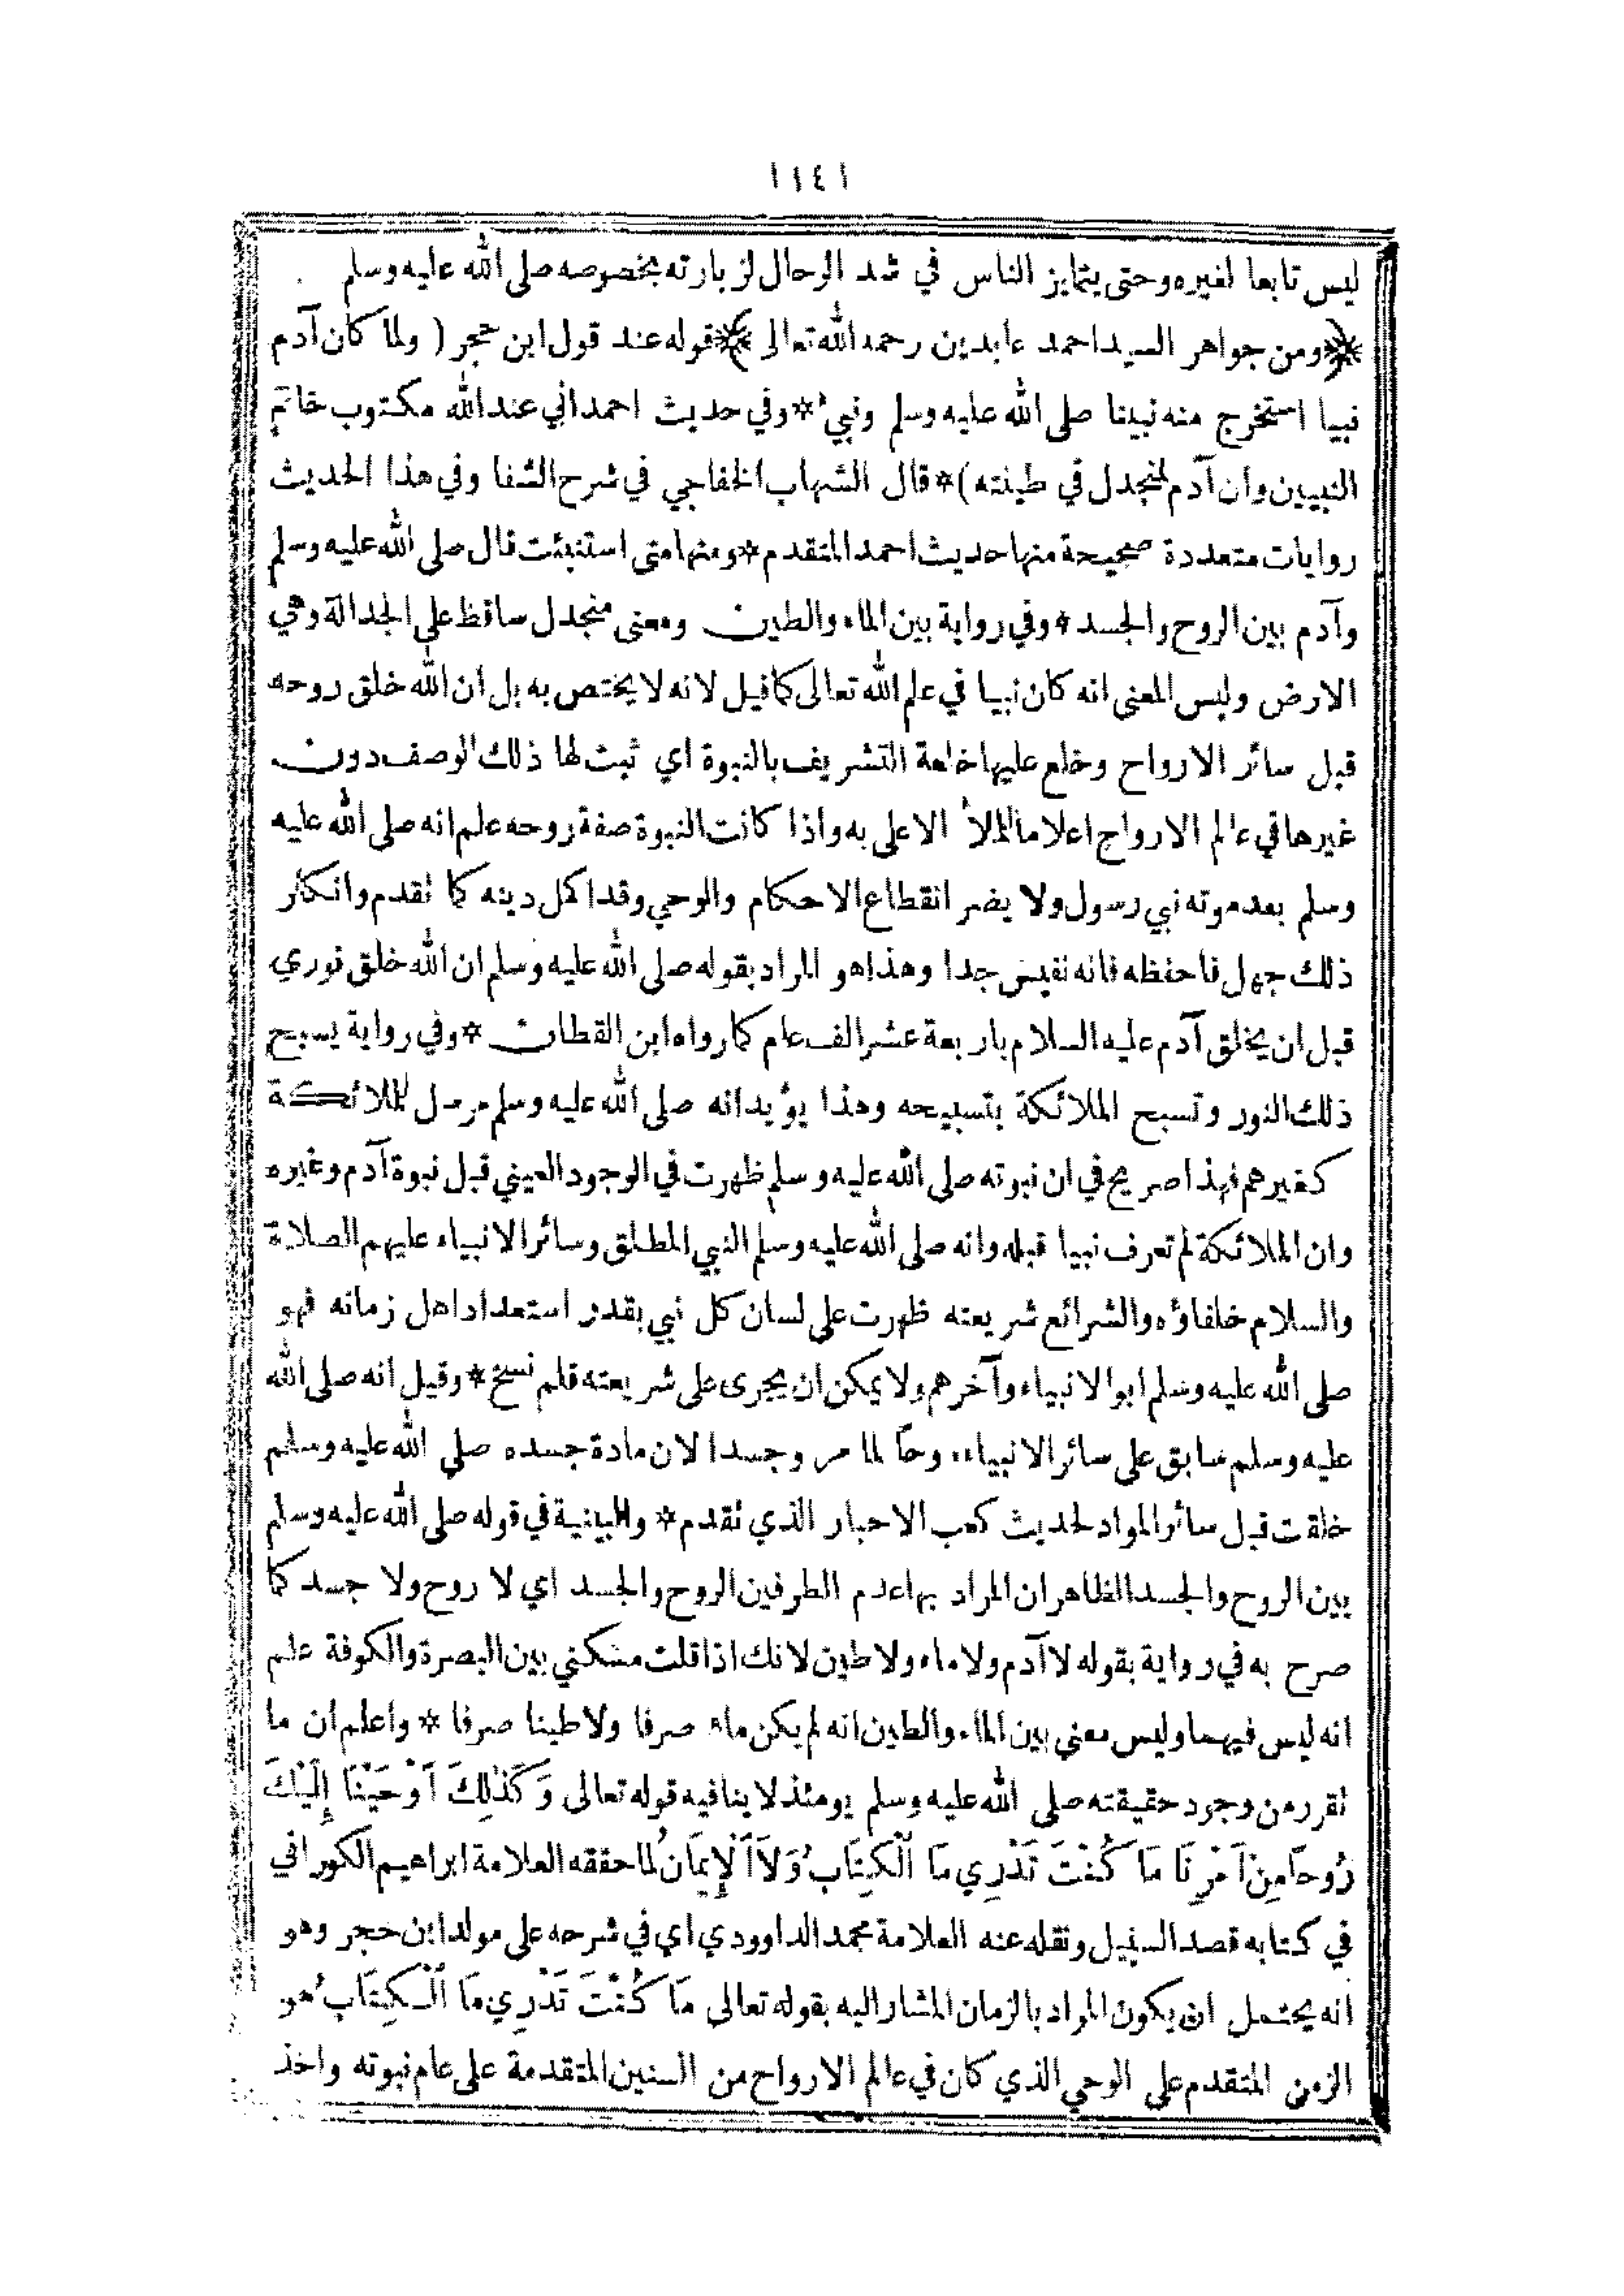 ١١٤١
ليس تابعا لغيره وحتى يتمايز الناس في شد الرحال لزيارته بخصوصه صلى الله عليه وسلم
﴿ ومن جواهر السيد احمد عابدين رحمه الله تعالى ﴾ قوله عند قول ابن حجر ( ولما كان آدم
نبيا استخرج منه نبينا صلى الله عليه وسلم ونبئ * وفي حديث احمد اني عند الله مكتوب خاتم
النبيين وان آدم لمنجدل في طينته ) * قال الشهاب الخفاجي في شرح الشفا وفي هذا الحديث
روايات متعددة صحيحة منها حديث احمد المتقدم * ومنها متى استنبئت قال صلى الله عليه وسلم
وآدم بين الروح والجسد * وفي رواية بين الماء والطين ومعنى منجدل ساقط على الجدالة وهي
الارض وليس المعنى انه كان نبيا في علم الله تعالى كما قيل لانه لا يختص به بل ان الله خلق روحه
قبل سائر الارواح وخلع عليها خلعة التشريف بالنبوة اي ثبت لها ذلك الوصف دون
غيرها في عالم الارواح اعلاما للملأ الاعلى به واذا كانت النبوة صفة روحه علم انه صلى الله عليه
وسلم بعد موته نبي رسول ولا يضر انقطاع الاحكام والوحي وقد اكمل دينه كما تقدم وانكار
ذلك جهل فاحفظه فانه نفيس جدا وهذا هو المراد بقوله صلى الله عليه وسلم ان الله خلق نوري
قبل ان يخلق آدم عليه السلام باربعة عشر الف عام كما رواه ابن القطان * وفي رواية يسبح
ذلك النور وتسبح الملائكة بتسبيحه وهذا يؤيد انه صلى الله عليه وسلم مرسل للملائكة
كغيرهم فهذا صريح في ان نبوته صلى الله عليه وسلم ظهرت في الوجود العيني قبل نبوة آدم وغيره
وان الملائكة لم تعرف نبيا قبله وانه صلى الله عليه وسلم النبي المطلق وسائر الانبياء عليهم الصلاة
والسلام خلفاؤه والشرائع شريعته ظهرت على لسان كل نبي بقدر استعداد اهل زمانه فهو
صلى الله عليه وسلم ابو الانبياء وآخرهم ولا يمكن ان يجرى على شريعته قلم نسخ * وقيل انه صلى الله
عليه وسلم سابق على سائر الانبياء روحا لما مر وجسدا لان مادة جسده صلى الله عليه وسلم
خلقت قبل سائر المواد لحديث كعب الاحبار الذي تقدم * والبينية في قوله صلى الله عليه وسلم
بين الروح والجسد الظاهر ان المراد بها عدم الطرفين الروح والجسد اي لا روح ولا جسد كما
صرح به في رواية بقوله لا آدم ولا ماء ولا طين لانك اذا قلت مسكني بين البصرة والكوفة علم
انه ليس فيهما وليس معنى بين الماء والطين انه لم يكن ماء صرفا ولا طينا صرفا * واعلم ان ما
تقرر من وجود حقيقته صلى الله عليه وسلم يومئذ لا ينافيه قوله تعالى وَكَذَلِكَ أَوْحَيْنَا إِلَيْكَ
رُوحًا مِنْ أَمْرِنَا مَا كُنْتَ تَدْرِي مَا ٱلْكِتَابُ وَلَا ٱلْإِيمَانُ لما حققه العلامة ابراهيم الكوراني
في كتابه قصد السبيل ونقله عنه العلامة محمد الداوودي اي في شرحه على مولد ابن حجر وهو
انه يحتمل ان يكون المراد بالزمان المشار اليه بقوله تعالى مَا كُنْتَ تَدْرِي مَا ٱلْكِتَابُ هو
الزمن المتقدم على الوحي الذي كان في عالم الارواح من السنين المتقدمة على عام نبوته واخذ